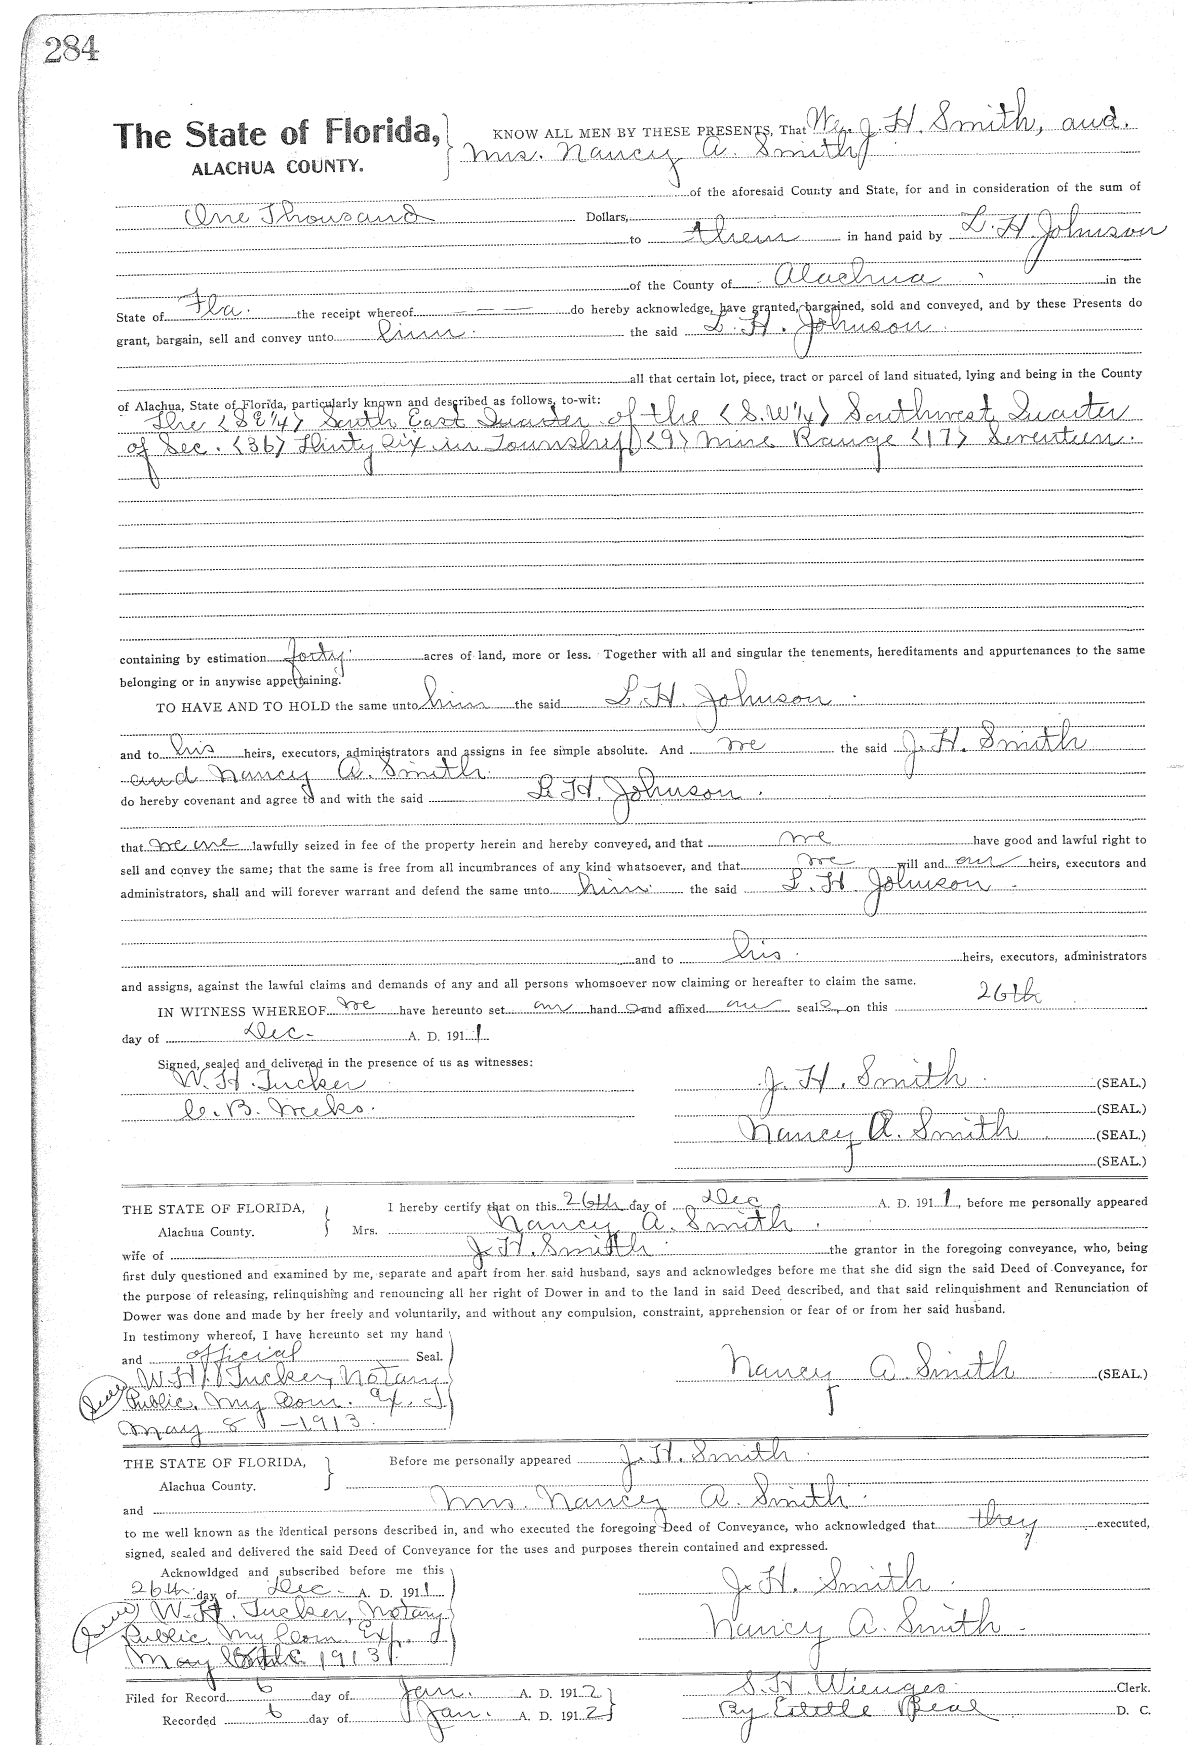 284
The State of Florida,
ALACHUA COUNTY.
KNOW ALL MEN BY THESE PRESENTS, That We, J. H. Smith, and.
Mrs. Nancy A. Smith
of the aforesaid County and State, for and in consideration of the sum of
One Thousand Dollars,
to them in hand paid by L. H. Johnson
of the County of Alachua in the
State of Fla. the receipt whereof — — — do hereby acknowledge, have granted, bargained, sold and conveyed, and by these Presents do
grant, bargain, sell and convey unto him. the said L. H. Johnson.
all that certain lot, piece, tract or parcel of land situated, lying and being in the County
of Alachua, State of Florida, particularly known and described as follows, to-wit:
The <SE¼> South East Quarter of the <S.W¼> Southwest Quarter
of Sec. <36> Thirty six in Township <9> Nine Range <17> Seventeen.
containing by estimation forty. acres of land, more or less. Together with all and singular the tenements, hereditaments and appurtenances to the same
belonging or in anywise appertaining.
TO HAVE AND TO HOLD the same unto him the said L. H. Johnson
and to his heirs, executors, administrators and assigns in fee simple absolute. And we the said J. H. Smith
and Nancy A. Smith.
do hereby covenant and agree to and with the said L. H. Johnson.
that we are lawfully seized in fee of the property herein and hereby conveyed, and that we have good and lawful right to
sell and convey the same; that the same is free from all incumbrances of any kind whatsoever, and that we will and our heirs, executors and
administrators, shall and will forever warrant and defend the same unto him. the said L. H. Johnson.
and to his. heirs, executors, administrators
and assigns, against the lawful claims and demands of any and all persons whomsoever now claiming or hereafter to claim the same.
IN WITNESS WHEREOF we have hereunto set our hand and affixed our seals, on this 26th
day of Dec- A. D. 1911
Signed, sealed and delivered in the presence of us as witnesses:
W. H. Tucker
C. B. Weeks.
J. H. Smith (SEAL.)
(SEAL.)
Nancy A. Smith (SEAL.)
(SEAL.)
THE STATE OF FLORIDA,
Alachua County.
I hereby certify that on this 26th day of Dec. A. D. 1911, before me personally appeared
Mrs. Nancy A. Smith.
wife of J. H. Smith the grantor in the foregoing conveyance, who, being
first duly questioned and examined by me, separate and apart from her said husband, says and acknowledges before me that she did sign the said Deed of Conveyance, for
the purpose of releasing, relinquishing and renouncing all her right of Dower in and to the land in said Deed described, and that said relinquishment and Renunciation of
Dower was done and made by her freely and voluntarily, and without any compulsion, constraint, apprehension or fear of or from her said husband.
In testimony whereof, I have hereunto set my hand
and official Seal.
W. H. Tucker, Notary
Public, My Com. Ex.
May 8 - 1913.
Nancy A. Smith (SEAL.)
THE STATE OF FLORIDA,
Alachua County.
Before me personally appeared J. H. Smith.
and Mrs. Nancy A. Smith.
to me well known as the identical persons described in, and who executed the foregoing Deed of Conveyance, who acknowledged that they executed,
signed, sealed and delivered the said Deed of Conveyance for the uses and purposes therein contained and expressed.
Acknowldged and subscribed before me this
26th day of Dec- A. D. 1911
W. H. Tucker, Notary
Public My Com. Exp.
May 1913.
J. H. Smith.
Nancy A. Smith.
Filed for Record 6 day of Jan. A. D. 1912
Recorded 6 day of Jan. A. D. 1912
S. H. Wienges. Clerk.
By Estelle Beal D. C.